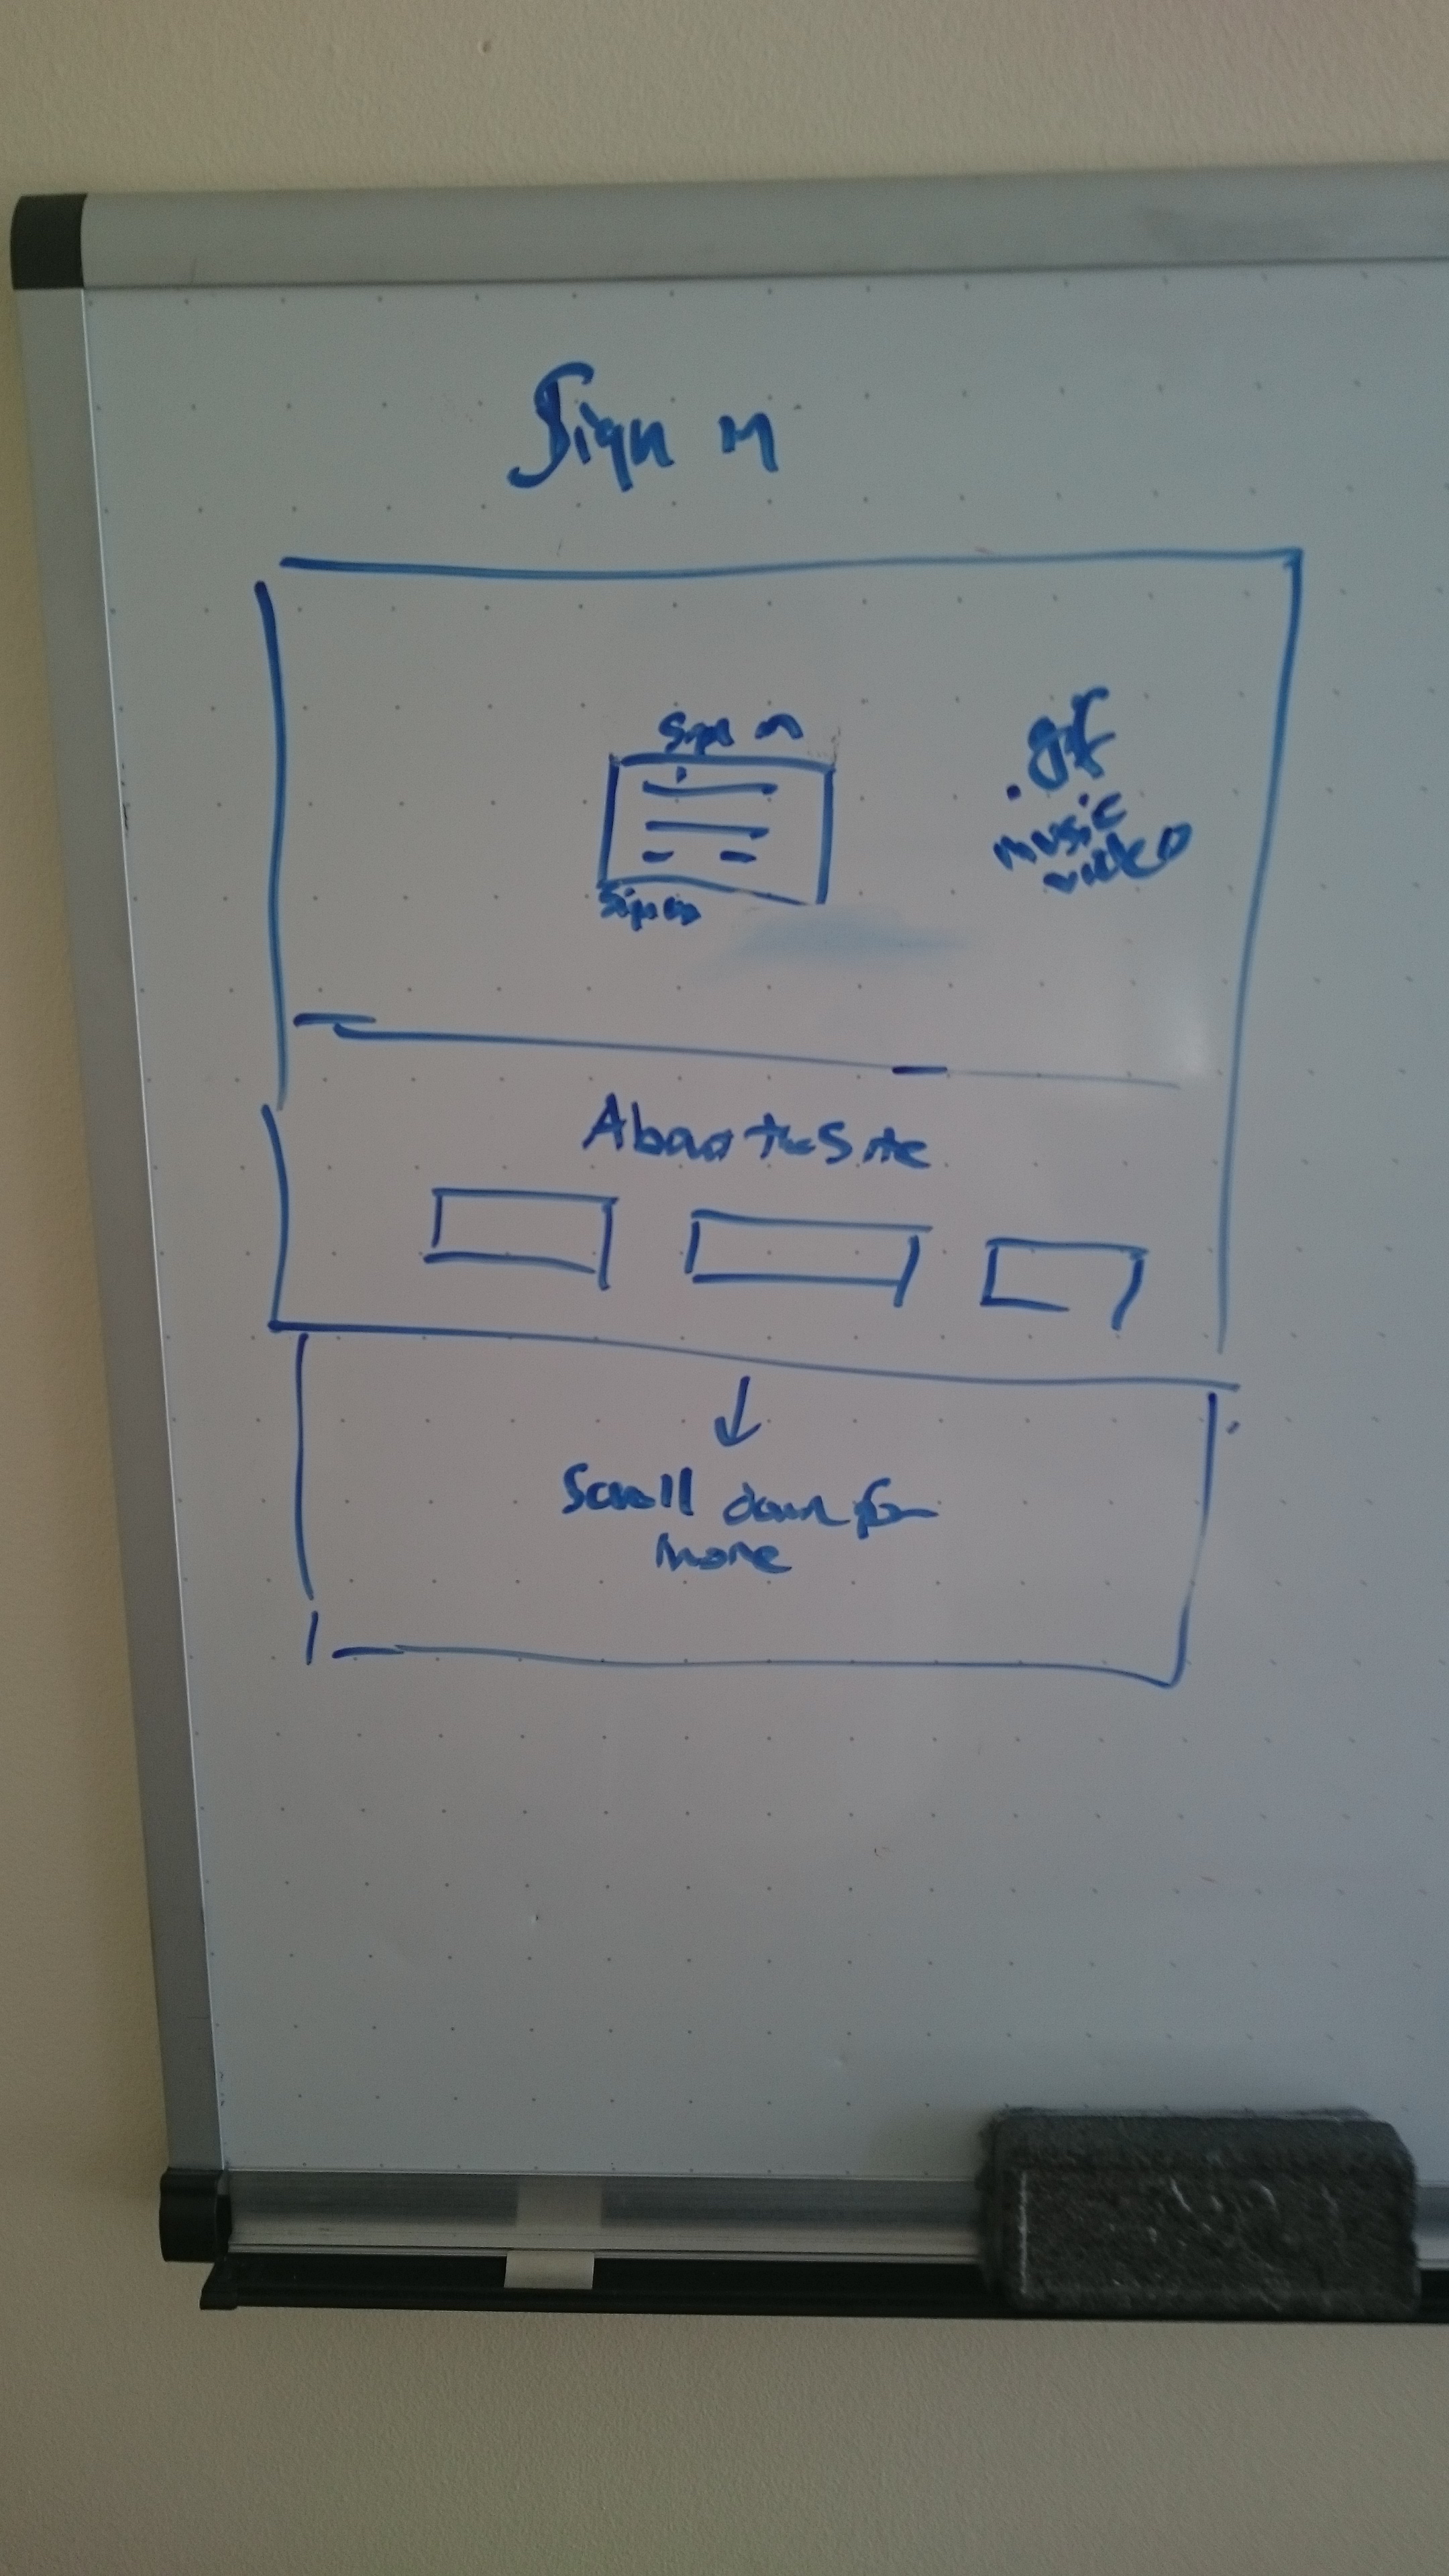 Sign in
Sign in
.gif
music
video
Sign up
About the Site
Scroll down for
more